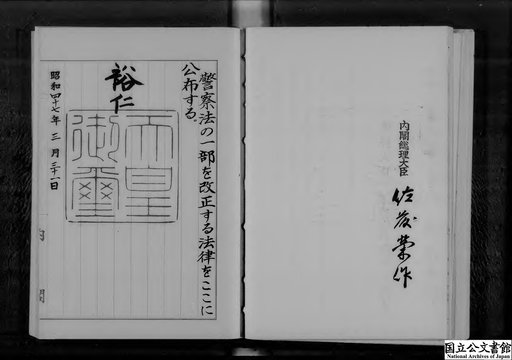 警察法の一部を改正する法律をここに
公布する。
裕仁
天皇
御璽
昭和四十七年三月三十一日
内閣総理大臣
佐藤榮作
国立公文書館
National Archives of Japan